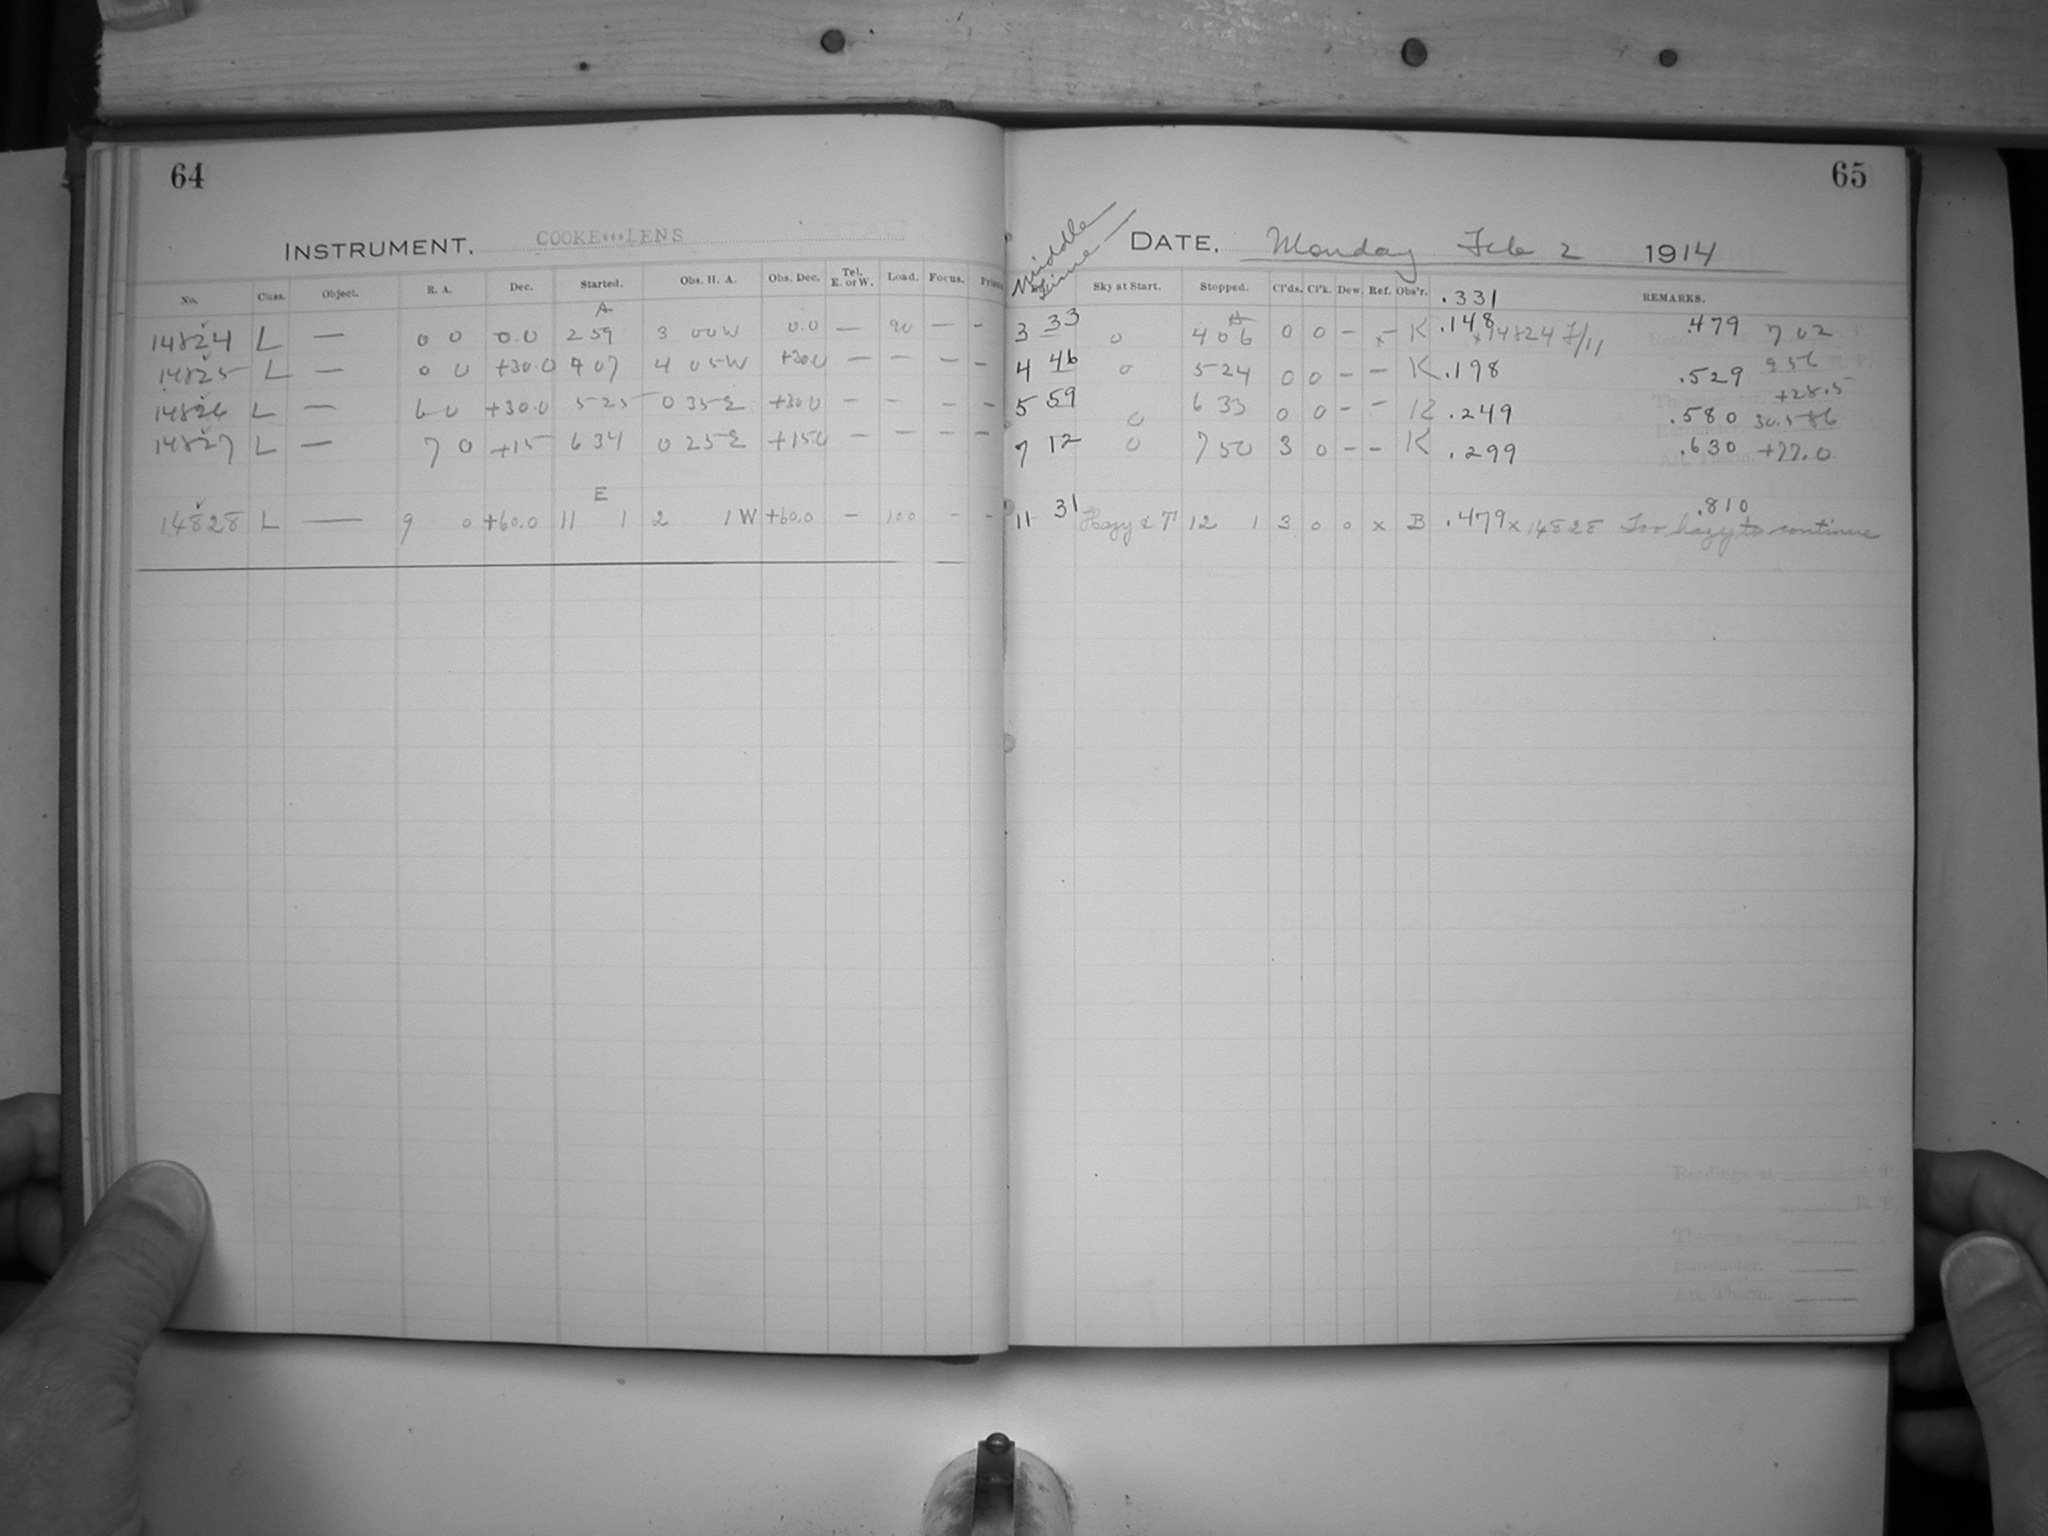 64
INSTRUMENT. COOKE LENS
No. Class. Object. R. A. Dec. Started. Obs. H. A. Obs. Dec. Tel. E. or W. Load. Focus.
A
14824 L — 0 0 0.0 2 59 3 00W 0.0 — 90 — -
14825 L — 0 0 +30.0 4 07 4 05W +30.0 — — — —
14826 L — 6 0 +30.0 5 25 0 35E +30.0 — — — —
14827 L — 7 0 +15 6 34 0 25E +15.0 — — — —
E
14828 L — 9 0 +60.0 11 1 2 1W +60.0 — 100 - -
65
Middle Time
DATE. Monday Feb 2 1914
Sky at Start. Stopped. Cl'ds. Cl'k. Dew. Ref. Obs'r. .331 REMARKS.
3 33 0 4 06 0 0 - x K .148 x 14824 F/11 .479 7 02
4 46 0 5 24 0 0 - - K .198 .529 9 56
+28.5
5 59 0 6 33 0 0 - - K .249 .580 30.586
7 12 0 7 50 3 0 - - K .299 .630 +77.0
.810
11 31 Hazy & T 12 1 3 0 0 x B .479 x 14828 Too hazy to continue